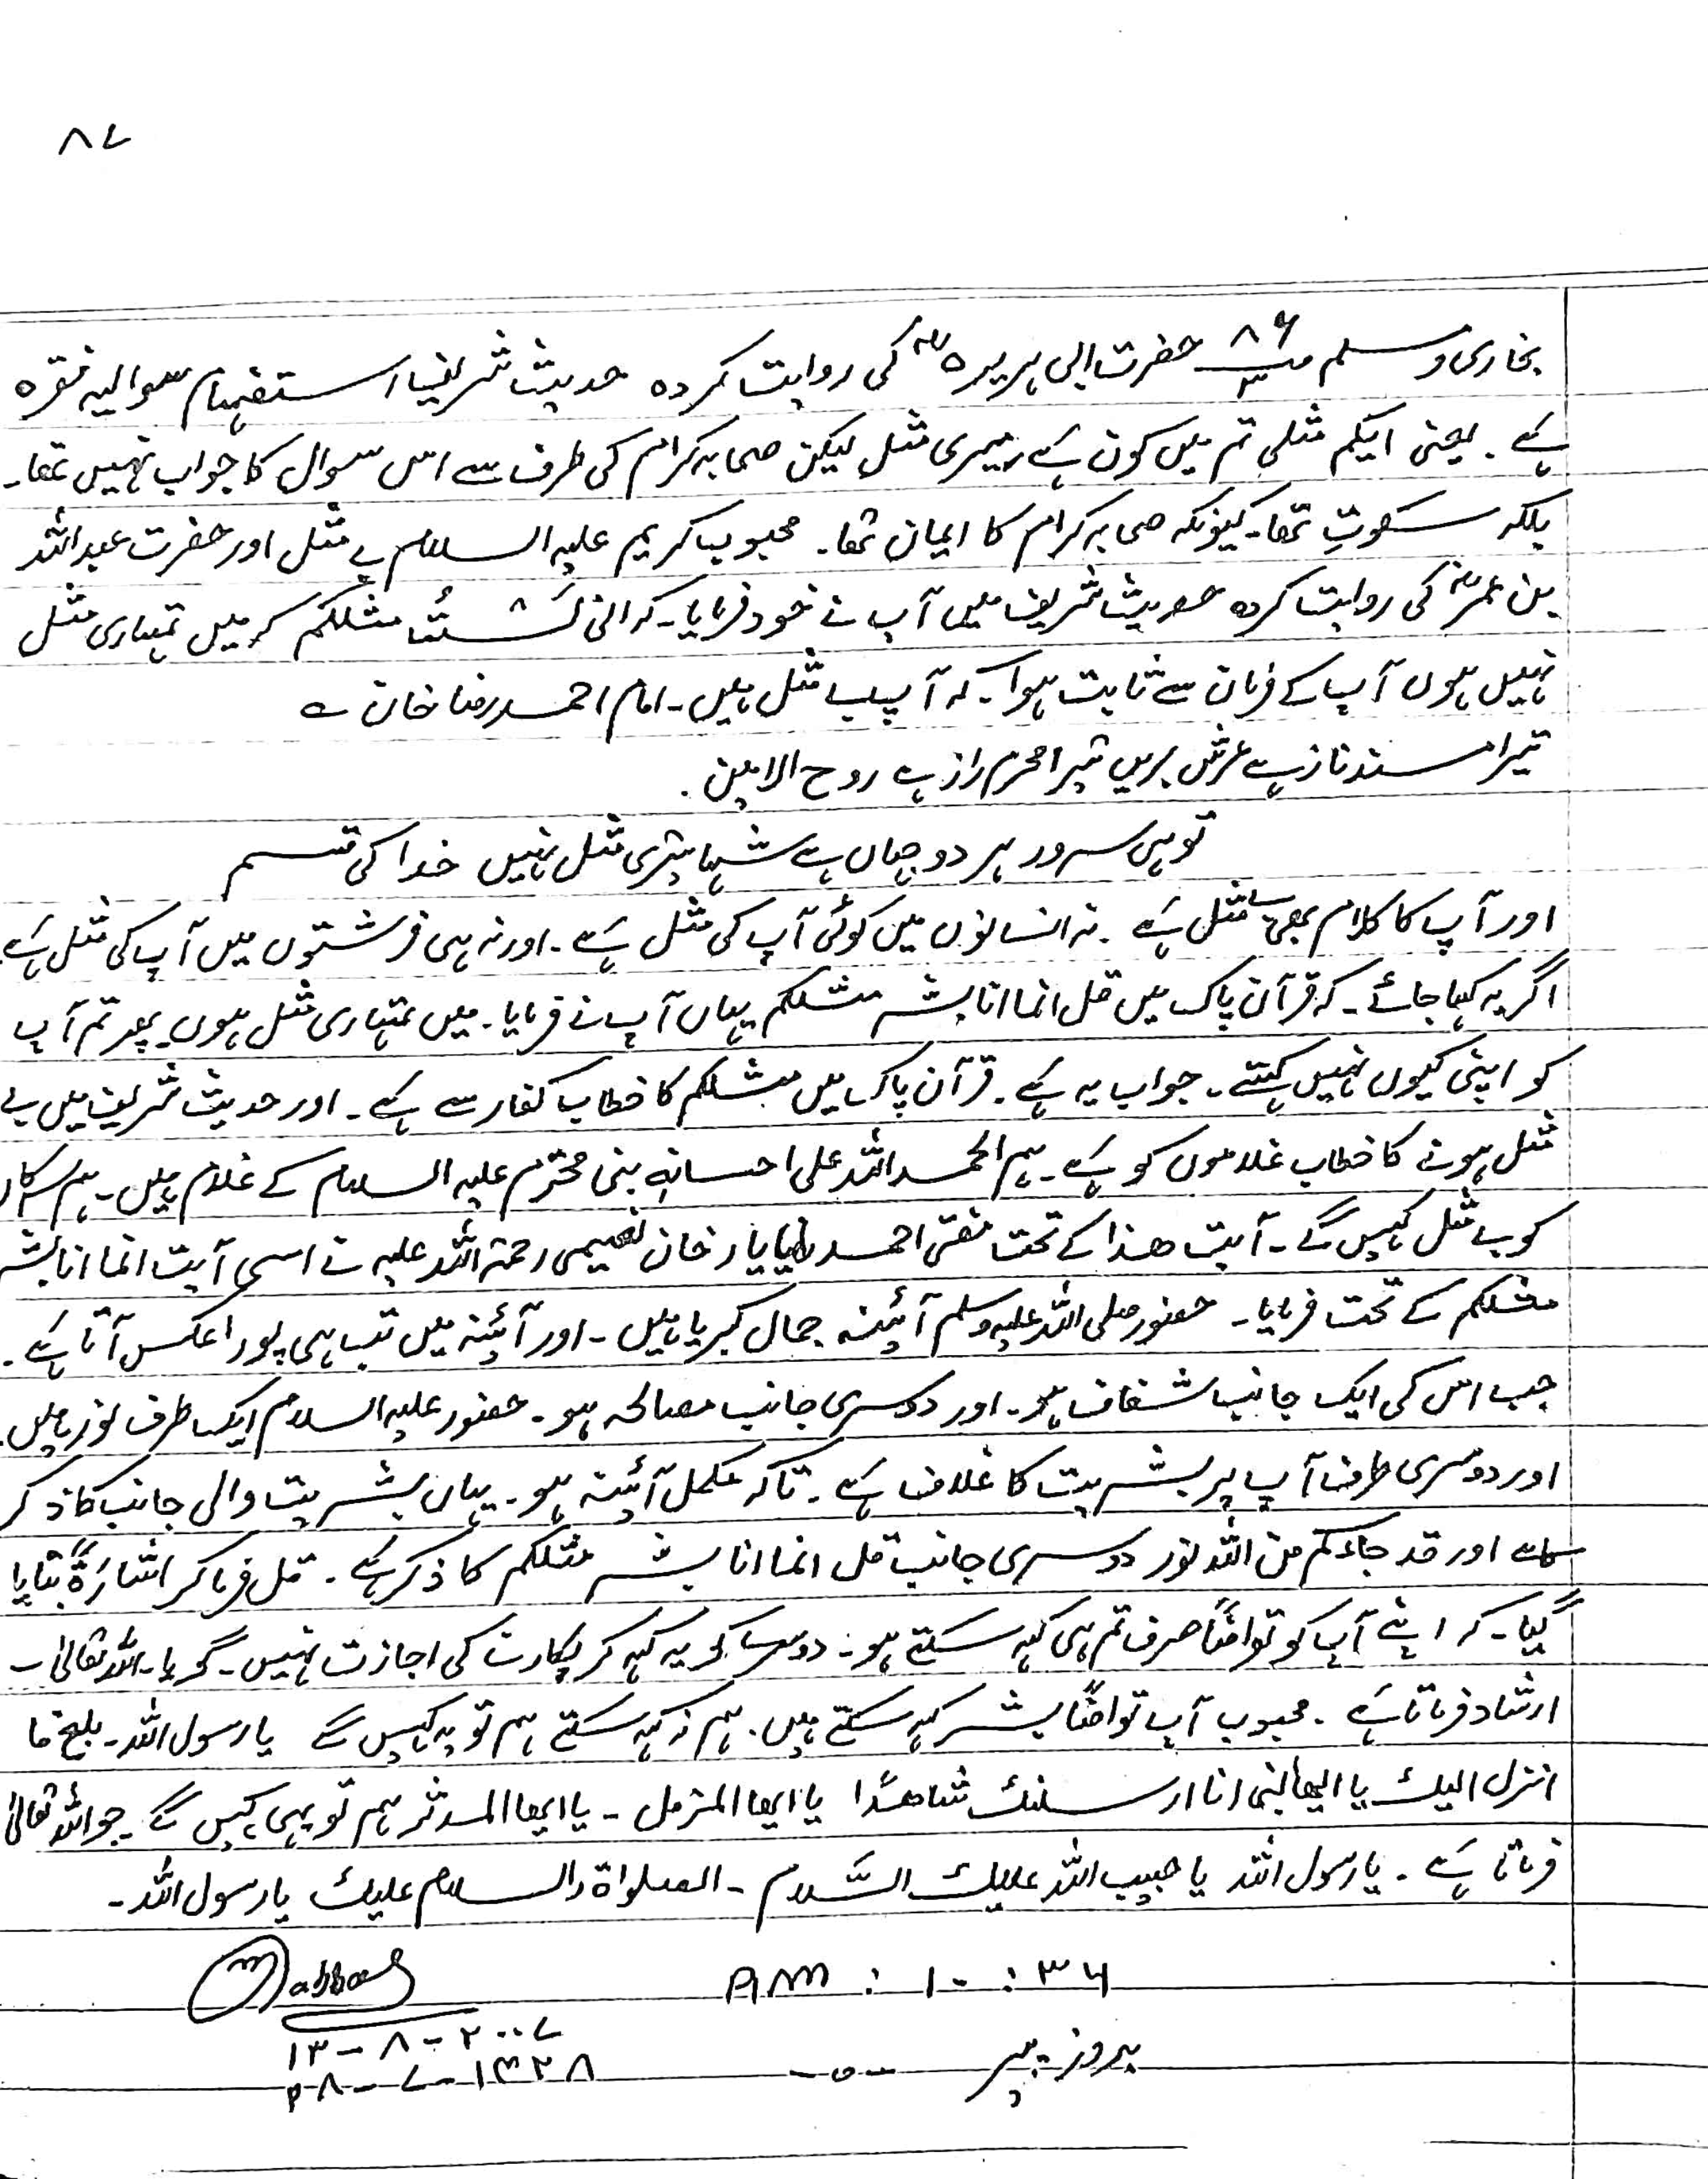 ۸۷
بخاری و مسلم صـ ۸۶/۳ حضرت ابی ہریرہؓ کی روایت کردہ حدیث شریف استفہام سوالیہ فقرہ
ہے ۔ یعنی ایکم مثلی تم میں کون ہے میری مثل لیکن صحابہ کرام کی طرف سے اس سوال کا جواب نہیں تھا۔
بلکہ سکوتِ تھا۔ کیونکہ صحابہ کرام کا ایمان تھا۔ محبوب کریم علیہ السلام بے مثل اور حضرت عبد اللہ
بن عمرؓ کی روایت کردہ حدیث شریف میں آپ نے خود فرمایا۔ کہ انی لَسْتُ مثلکم کہ میں تمہاری مثل
نہیں ہوں آپ کے فرمان سے ثابت ہوا۔ کہ آپ بے مثل ہیں۔ امام احمد رضا خان ؎
تیرا مسند ناز ہے عرش بریں تیرا محرم راز ہے روح الامین ۔
تو ہی سرور ہر دو جہاں ہے شہا تیری مثل نہیں خدا کی قسم
اور آپ کا کلام بھی بے مثل ہے ۔ نہ انسانوں میں کوئی آپ کی مثل ہے ۔ اور نہ ہی فرشتوں میں آپ کی مثل ہے ۔
اگر یہ کہا جائے۔ کہ قرآن پاک میں قل انما انا بشر مثلکم یہاں آپ نے فرمایا۔ میں تمہاری مثل ہوں۔ پھر تم آپ
کو اپنی کیوں نہیں کہتے ۔ جواب یہ ہے ۔ قرآن پاک میں مثلکم کا خطاب کفار سے ہے ۔ اور حدیث شریف میں بے
مثل ہونے کا خطاب غلاموں کو ہے ۔ ہم الحمد اللہ علی احسانہ نبی محترم علیہ السلام کے غلام ہیں۔ ہم سرکار
کو بے مثل کہیں گے ۔ آیت ھذا کے تحت مفتی احمد یار خان نعیمی رحمۃ اللہ علیہ نے اسی آیت انما انا بشر
مثلکم کے تحت فرمایا۔ حضور صلی اللہ علیہ وسلم آئینہ جمال کبریا ہیں ۔ اور آئینہ میں تب ہی پورا عکس آتا ہے ۔
جب اس کی ایک جانب شفاف ہو۔ اور دوسری جانب مصالحہ ہو ۔ حضور علیہ السلام ایک طرف نور ہیں ۔
اور دوسری طرف آپ پر بشریت کا غلاف ہے ۔ تاکہ مکمل آئینہ ہو ۔ یہاں بشریت والی جانب کا ذکر
ہے اور قد جاءکم من اللہ نور دوسری جانب قل انما انا بشر مثلکم کا ذکر ہے ۔ قل فرما کر اشارۃً بتایا
گیا۔ کہ اپنے آپ کو تواضعاً صرف تم ہی کہہ سکتے ہو ۔ دوسرے کو یہ کہہ کر پکارنے کی اجازت نہیں۔ گویا۔ اللہ تعالیٰ۔
ارشاد فرماتا ہے ۔ محبوب آپ تواضعاً بشر کہہ سکتے ہیں ۔ ہم نہ کہہ سکتے ہم تو یہ کہیں گے یا رسول اللہ ۔ بلغ ما
انزل الیک یا ایھا النبی انا ارسلنک شاھدًا یا ایھا المزمل ۔ یا ایھا المدثر ہم تو یہی کہیں گے ۔ جو اللہ تعالیٰ
فرماتا ہے ۔ یا رسول اللہ یا حبیب اللہ علیک السَّلام ۔ الصلواۃ والسلام علیک یا رسول اللہ ۔
AM : ۱۰ : ۳۶
۱۳ - ۸ - ۲۰۰۷
بروز پیر -۰-
۲۸ - ۷ - ۱۴۲۸